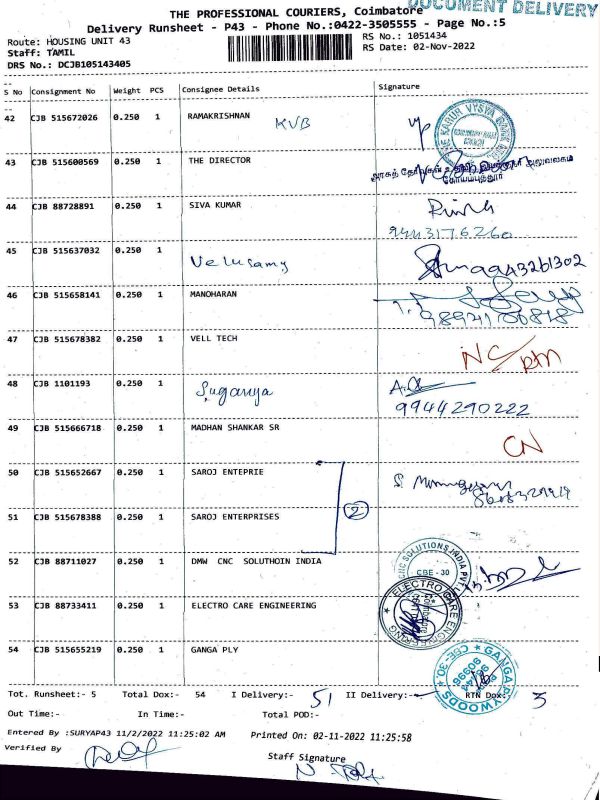 THE PROFESSIONAL COURIERS, Coimbatore
DOCUMENT DELIVERY
Delivery Runsheet - P43 - Phone No.:0422-3505555 - Page No.:5
Route: HOUSING UNIT 43
RS No.: 1051434
Staff: TAMIL
RS Date: 02-Nov-2022
DRS No.: DCJB105143405
S No Consignment No Weight PCS Consignee Details Signature
42 CJB 515672026 0.250 1 RAMAKRISHNAN KVB
THE KARUR VYSYA BANK
43 CJB 515600569 0.250 1 THE DIRECTOR
அரசுத் தேர்வுகள் அலுவலகம்
கோயம்புத்தூர்
44 CJB 88728891 0.250 1 SIVA KUMAR
9443176260
45 CJB 515637032 0.250 1 Velusamy
46 CJB 515658141 0.250 1 MANOHARAN
47 CJB 515678382 0.250 1 VELL TECH NC/RTN
48 CJB 1101193 0.250 1 Suganya
9944290222
49 CJB 515666718 0.250 1 MADHAN SHANKAR SR CN
50 CJB 515652667 0.250 1 SAROJ ENTEPRIE
2
51 CJB 515678388 0.250 1 SAROJ ENTERPRISES
52 CJB 88711027 0.250 1 DMW CNC SOLUTHOIN INDIA
CNC SOLUTIONS INDIA PVT
CBE - 30
53 CJB 88733411 0.250 1 ELECTRO CARE ENGINEERING
ELECTRO CARE ENGINEERING
54 CJB 515655219 0.250 1 GANGA PLY
GANGA PLYWOODS CBE-30.
Tot. Runsheet:- 5 Total Dox:- 54 I Delivery:- 51 II Delivery:- RTN Dox:- 3
Out Time:- In Time:- Total POD:-
Entered By :SURYAP43 11/2/2022 11:25:02 AM Printed On: 02-11-2022 11:25:58
Verified By
Staff Signature